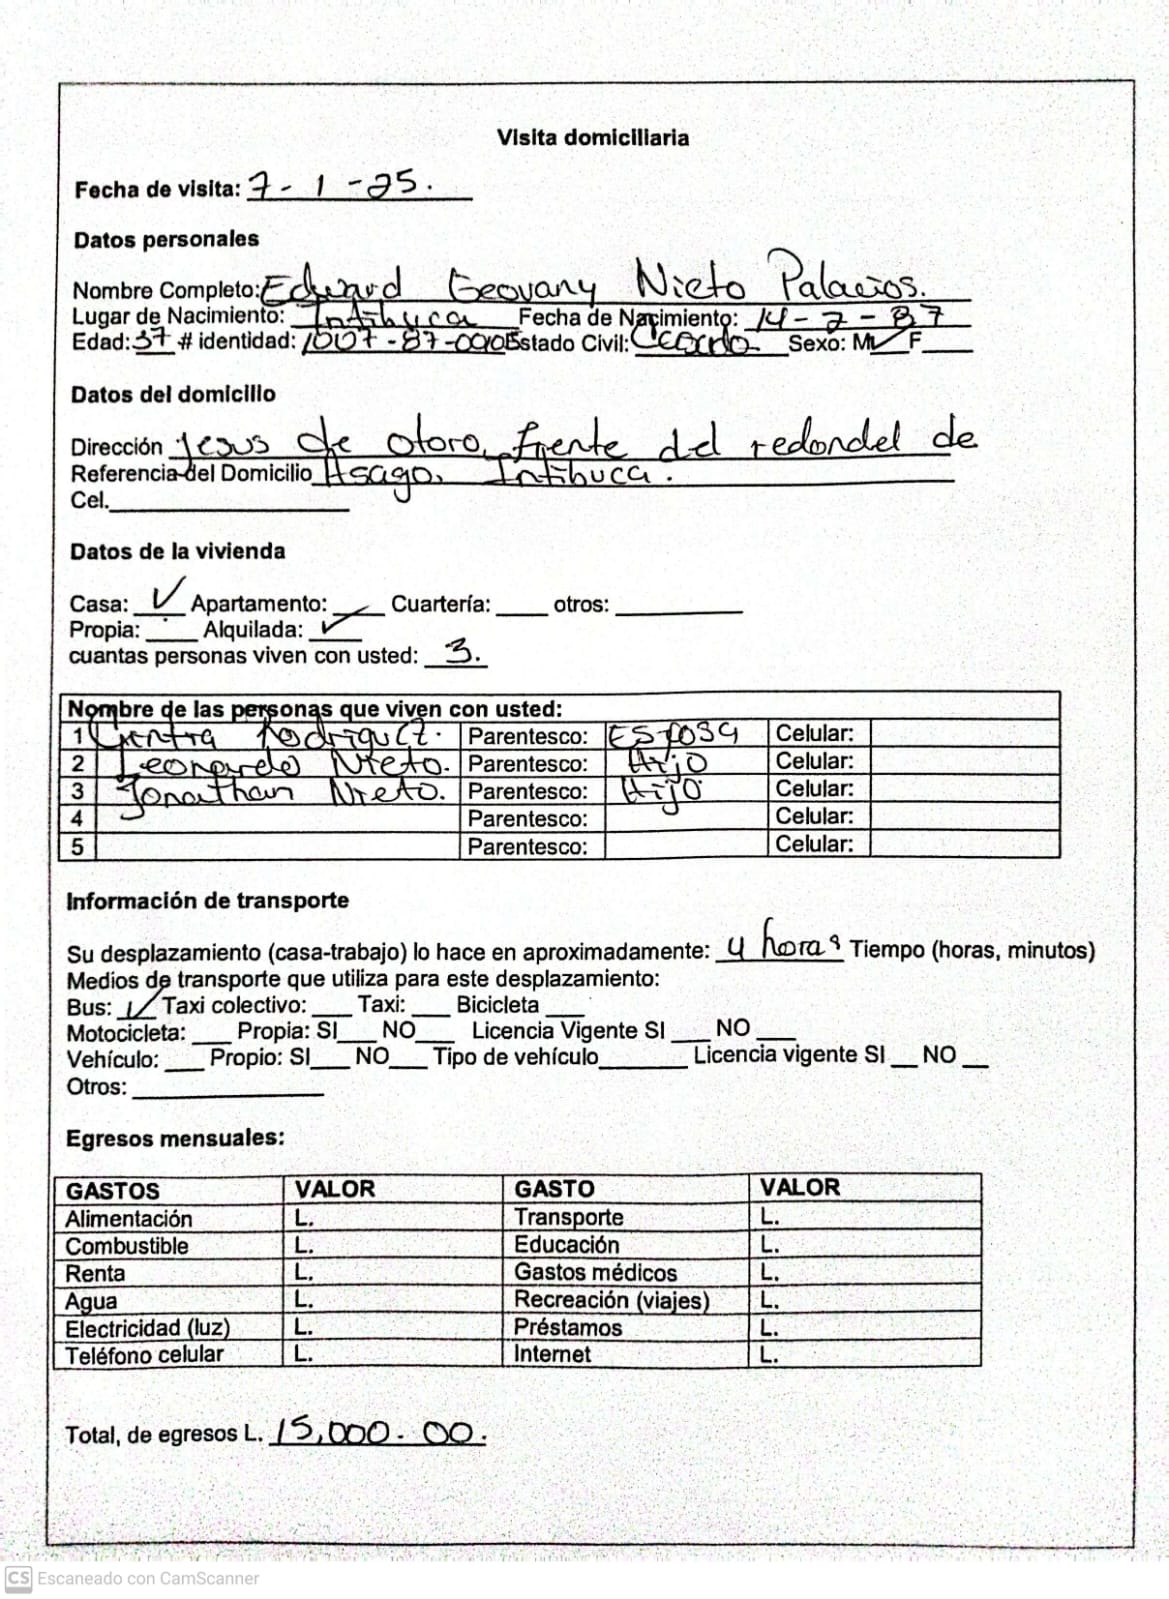 Visita domiciliaria
Fecha de visita: 7-1-25.
Datos personales
Nombre Completo: Edward Geovany Nieto Palacios.
Lugar de Nacimiento: Intibuca Fecha de Nacimiento: 14-2-87
Edad: 37 # identidad: 1007-87-0010 Estado Civil: Sexo: M ✓ F
Datos del domicilio
Dirección Jesus de otoro, frente del redondel de
Referencia del Domicilio Asago. Intibuca.
Cel.
Datos de la vivienda
Casa: ✓ Apartamento: Cuartería: otros:
Propia: Alquilada: ✓
cuantas personas viven con usted: 3.
Nombre de las personas que viven con usted:
1 Rodriguez. Parentesco: Esposa Celular:
2 Leonardo Nieto. Parentesco: Hijo Celular:
3 Jonathan Nieto. Parentesco: Hijo Celular:
4 Parentesco: Celular:
5 Parentesco: Celular:
Información de transporte
Su desplazamiento (casa-trabajo) lo hace en aproximadamente: 4 horas Tiempo (horas, minutos)
Medios de transporte que utiliza para este desplazamiento:
Bus: ✓ Taxi colectivo: Taxi: Bicicleta
Motocicleta: Propia: SI NO Licencia Vigente SI NO
Vehículo: Propio: SI NO Tipo de vehículo Licencia vigente SI NO
Otros:
Egresos mensuales:
GASTOS VALOR GASTO VALOR
Alimentación L. Transporte L.
Combustible L. Educación L.
Renta L. Gastos médicos L.
Agua L. Recreación (viajes) L.
Electricidad (luz) L. Préstamos L.
Teléfono celular L. Internet L.
Total, de egresos L. 15,000.00.
CS Escaneado con CamScanner